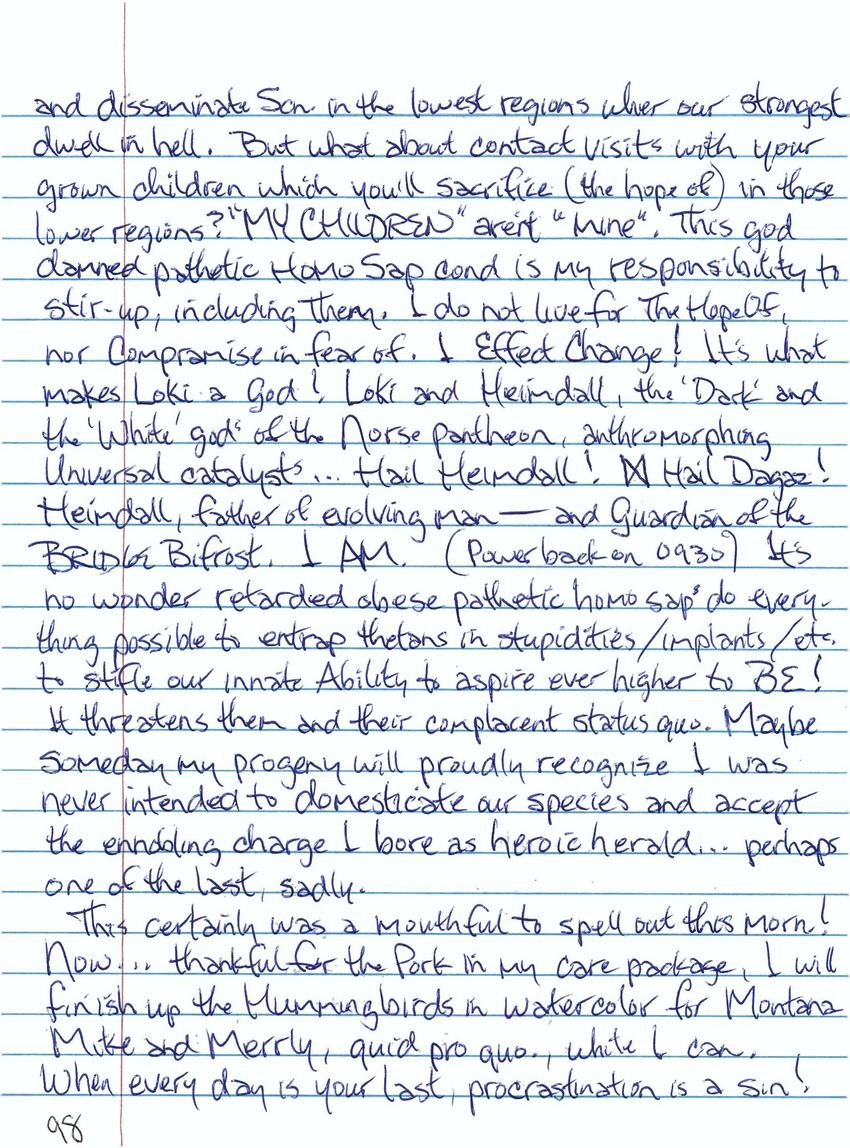 and disseminate Scn in the lowest regions wher our strongest
dwell in hell. But what about contact visits with your
grown children which you'll sacrifice (the hope of) in those
lower regions? "MY CHILDREN" aren't "mine". This god
damned pathetic Homo Sap cond is my responsibility to
stir-up, including Them. I do not live for The Hope Of,
nor Compromise in fear of. I Effect Change! It's what
makes Loki a God! Loki and Heimdall, the 'Dark' and
the 'White' gods of the Norse pantheon, anthromorphing
Universal catalysts... Hail Heimdall! ᛞ Hail Dagaz!
Heimdall, father of evolving man — and Guardian of the
BRIDGE Bifrost. I AM. (Power back on 0930) It's
no wonder retarded obese pathetic homo saps do every-
thing possible to entrap thetans in stupidities/implants/etc.
to stifle our innate Ability to aspire ever higher to BE!
It threatens them and their complacent status quo. Maybe
someday my progeny will proudly recognize I was
never intended to domesticate our species and accept
the ennobling charge I bore as heroic herald... perhaps
one of the last, sadly.
This certainly was a mouthful to spell out this morn!
Now... thankful for the Pork in my care package, I will
finish up the Hummingbirds in watercolor for Montana
Mike and Merrly, quid pro quo., while I can.
When every day is your last, procrastination is a sin!
98